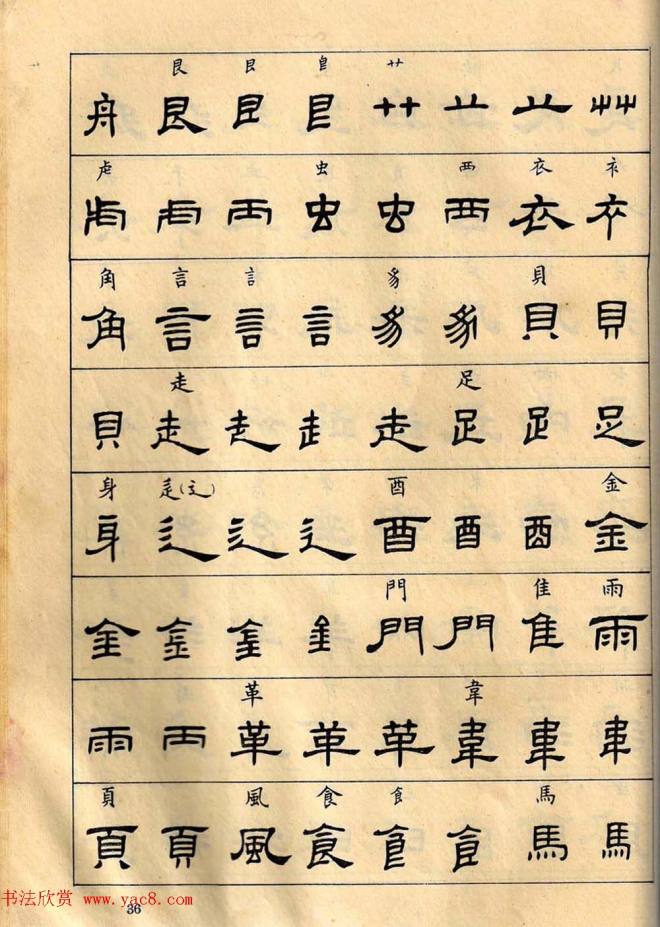 艮 艮 𠂤 艹
舟 艮 艮 艮 艹 䒑 䒑 艸
虍 虫 西 衣 衤
虍 虍 西 虫 虫 西 衣 衤
角 言 訁 豸 貝
角 言 言 言 豸 豸 貝 貝
走 足
貝 走 走 走 走 足 足 足
身 辵(辶) 酉 金
身 辶 辶 辶 酉 酉 酉 金
門 隹 雨
金 金 金 金 門 門 隹 雨
革 韋
雨 雨 革 革 革 韋 韋 韋
頁 風 食 飠 馬
頁 頁 風 食 飠 飠 馬 馬
书法欣赏 www.yac8.com
36